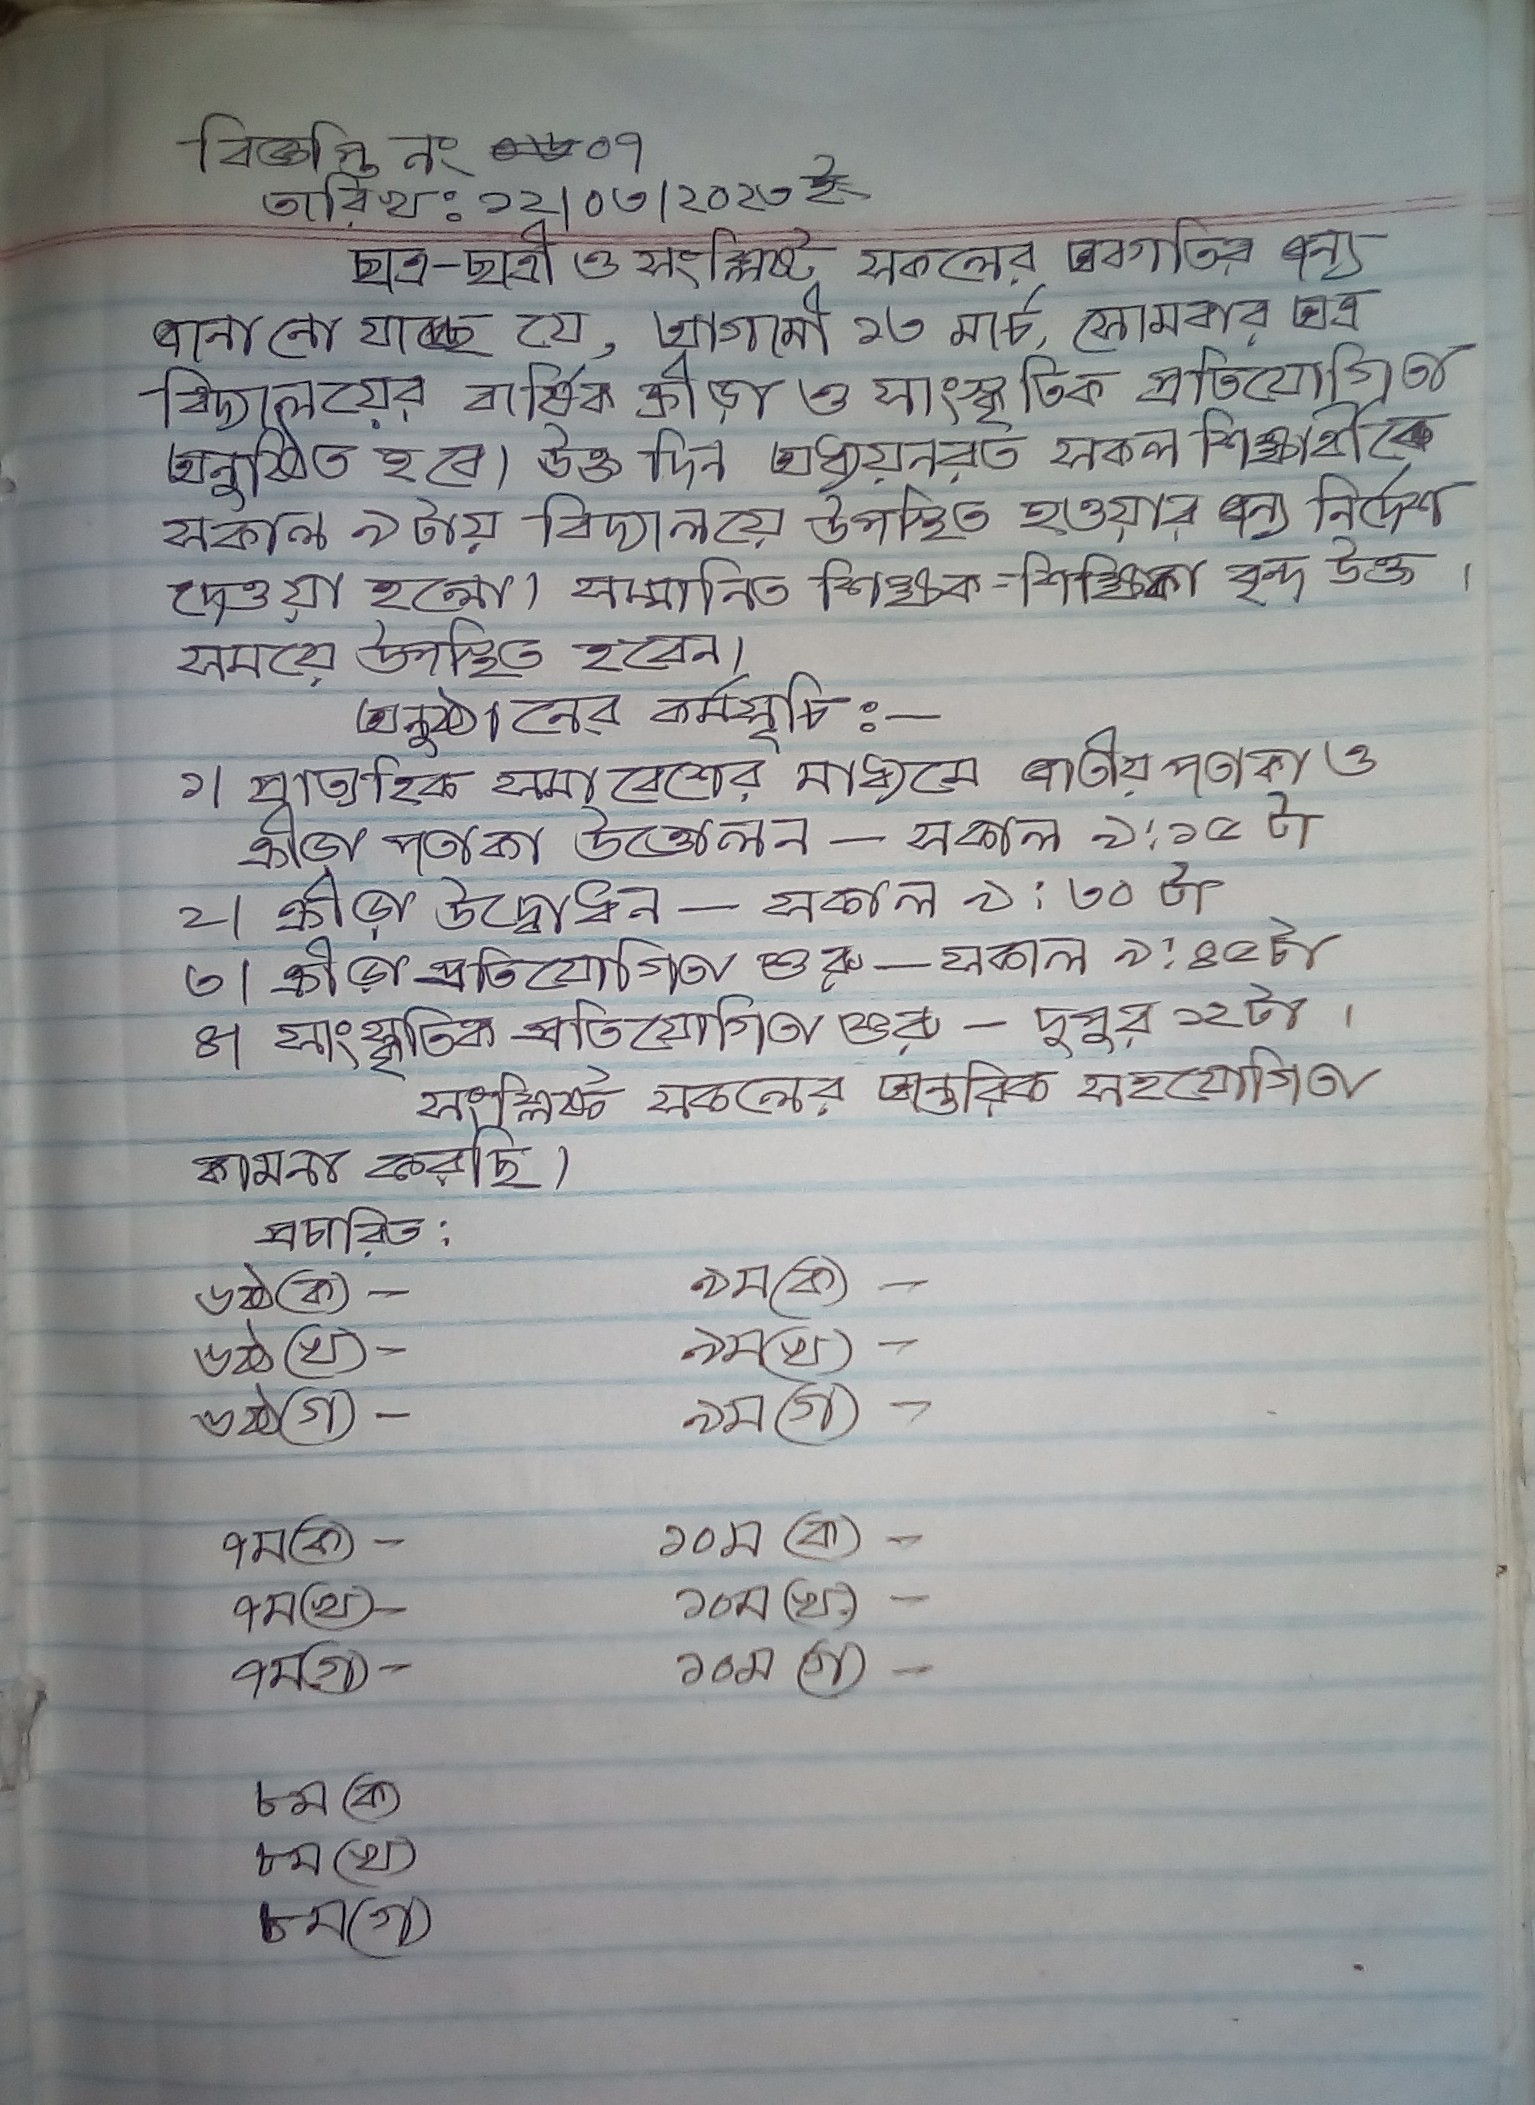 বিজ্ঞপ্তি নং ০৭
তারিখ: ১২/০৩/২০২৩ ইং
ছাত্র-ছাত্রী ও সংশ্লিষ্ট সকলের অবগতির জন্য
জানানো যাচ্ছে যে, আগামী ১৩ মার্চ, সোমবার অত্র
বিদ্যালয়ের বার্ষিক ক্রীড়া ও সাংস্কৃতিক প্রতিযোগিতা
অনুষ্ঠিত হবে। উক্ত দিন অধ্যয়নরত সকল শিক্ষার্থীকে
সকাল ৯টায় বিদ্যালয়ে উপস্থিত হওয়ার জন্য নির্দেশ
দেওয়া হলো। সম্মানিত শিক্ষক-শিক্ষিকা বৃন্দ উক্ত
সময়ে উপস্থিত হবেন।
অনুষ্ঠানের কর্মসূচি:—
১। প্রাত্যহিক সমাবেশের মাধ্যমে জাতীয় পতাকা ও
ক্রীড়া পতাকা উত্তোলন — সকাল ৯:১৫ টা
২। ক্রীড়া উদ্বোধন — সকাল ৯:৩০ টা
৩। ক্রীড়া প্রতিযোগিতা শুরু — সকাল ৯:৪৫টা
৪। সাংস্কৃতিক প্রতিযোগিতা শুরু — দুপুর ১২টা।
সংশ্লিষ্ট সকলের আন্তরিক সহযোগিতা
কামনা করছি।
প্রচারিত:
৬ষ্ঠ(ক) — ৯ম(ক) —
৬ষ্ঠ(খ) — ৯ম(খ) —
৬ষ্ঠ(গ) — ৯ম(গ) —
৭ম(ক) — ১০ম (ক) —
৭ম(খ) — ১০ম (খ) —
৭ম(গ) — ১০ম (গ) —
৮ম (ক)
৮ম (খ)
৮ম(গ)